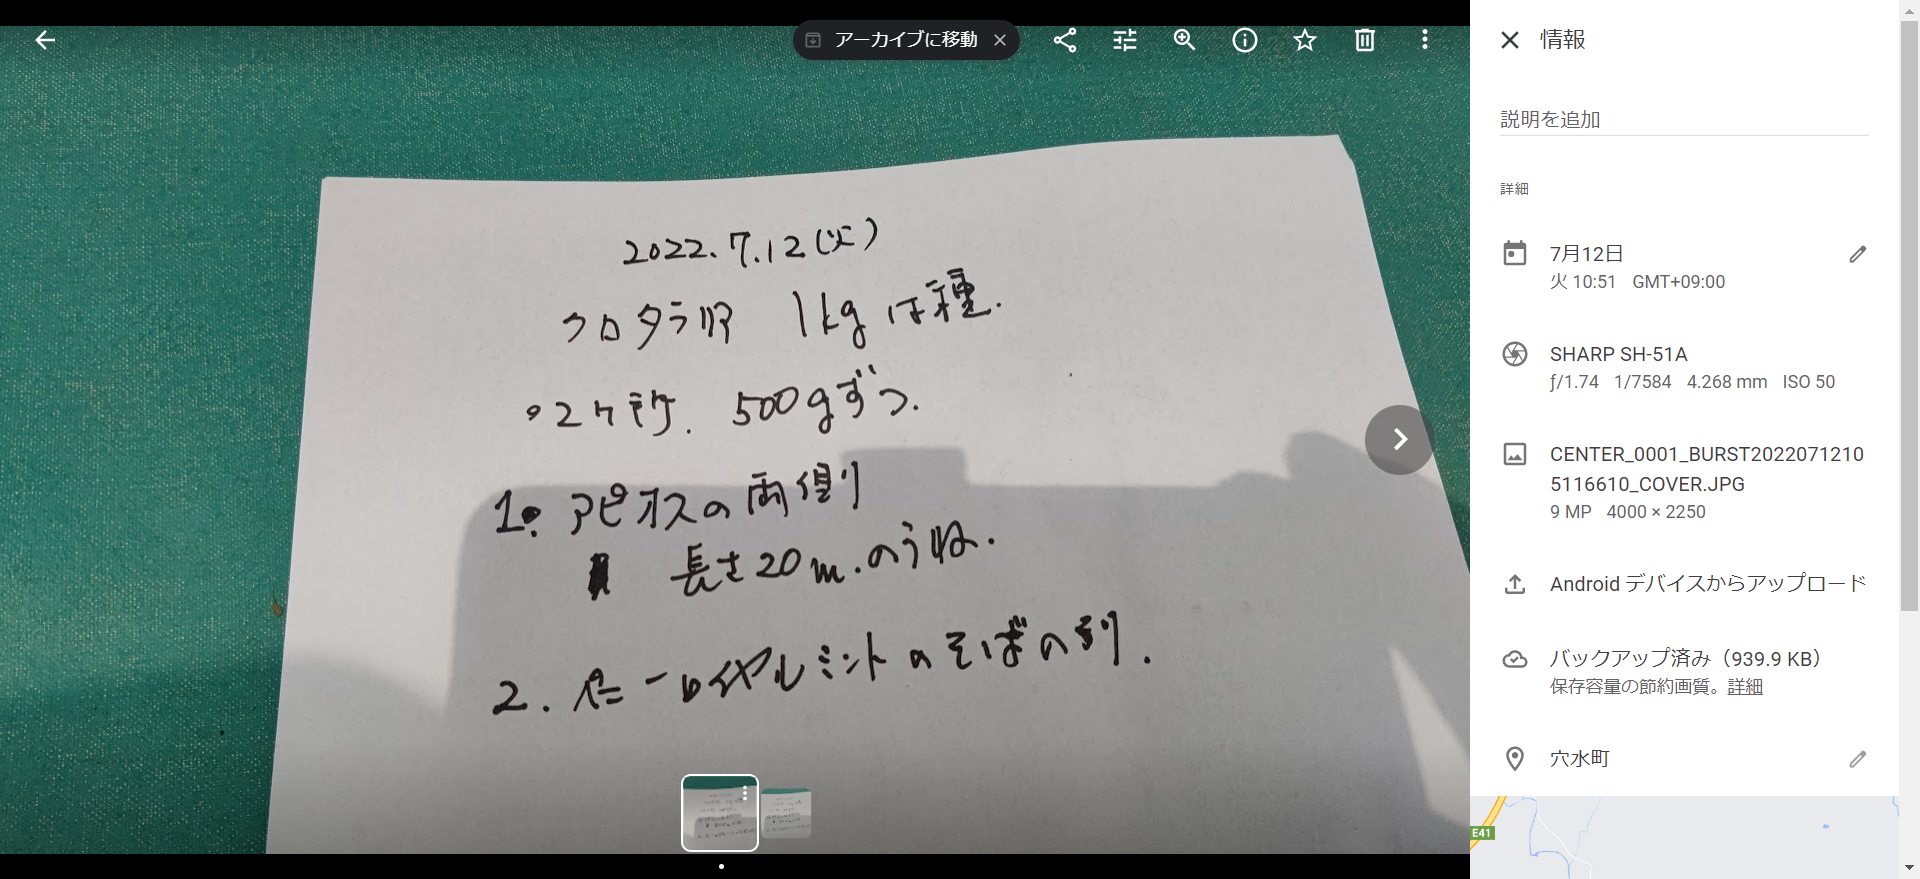 アーカイブに移動
2022.7.12(火)
クロタラリア 1kg は種.
・2ヶ所. 500gずつ.
1. アピオスの両側
長さ20m.のうね.
2. ペニーロイヤルミントのそばの列.
情報
説明を追加
詳細
7月12日
火 10:51 GMT+09:00
SHARP SH-51A
ƒ/1.74 1/7584 4.268 mm ISO 50
CENTER_0001_BURST2022071210
5116610_COVER.JPG
9 MP 4000 × 2250
Android デバイスからアップロード
バックアップ済み（939.9 KB）
保存容量の節約画質。詳細
穴水町
E41